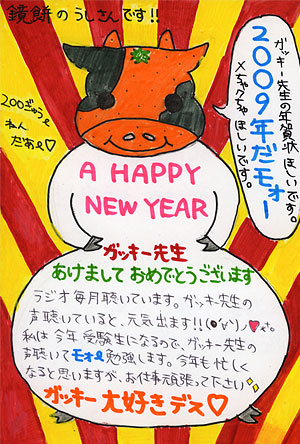 鏡餅のうしさんです!!
ガッキー先生の年賀状 ほしいです。
2009年だモォー
メちゃクちゃ ほしいです。
200ぎゅう
ねん
だぁ
A HAPPY
NEW YEAR
ガッキー先生
あけまして おめでとうございます
ラジオ毎月聴いています。ガッキー先生の
声聴いていると、元気出ます!!
私は今年受験生になるので、ガッキー先生の
声聴いてモォ〜勉強します。今年も忙しく
なると思いますが、お仕事頑張って下さい
ガッキー 大好きデス♡